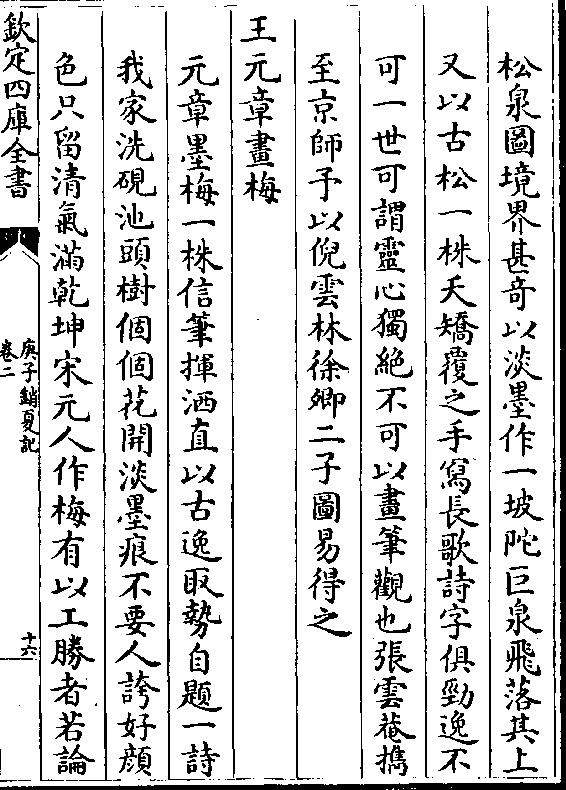 松泉圖境界甚奇以淡墨作一坡陀巨泉飛落其上
又以古松一株夭矯覆之手寫長歌詩字俱勁逸不
可一世可謂靈心獨絶不可以畫筆觀也張雲菴攜
至京師予以倪雲林徐卿二子圖易得之
王元章畫梅
元章墨梅一株信筆揮洒直以古逸取勢自題一詩
我家洗硯池頭樹個個花開淡墨痕不要人誇好顔
色只留清氣滿乾坤宋元人作梅有以工勝者若論
欽定四庫全書
庚子銷夏記
卷二
十六